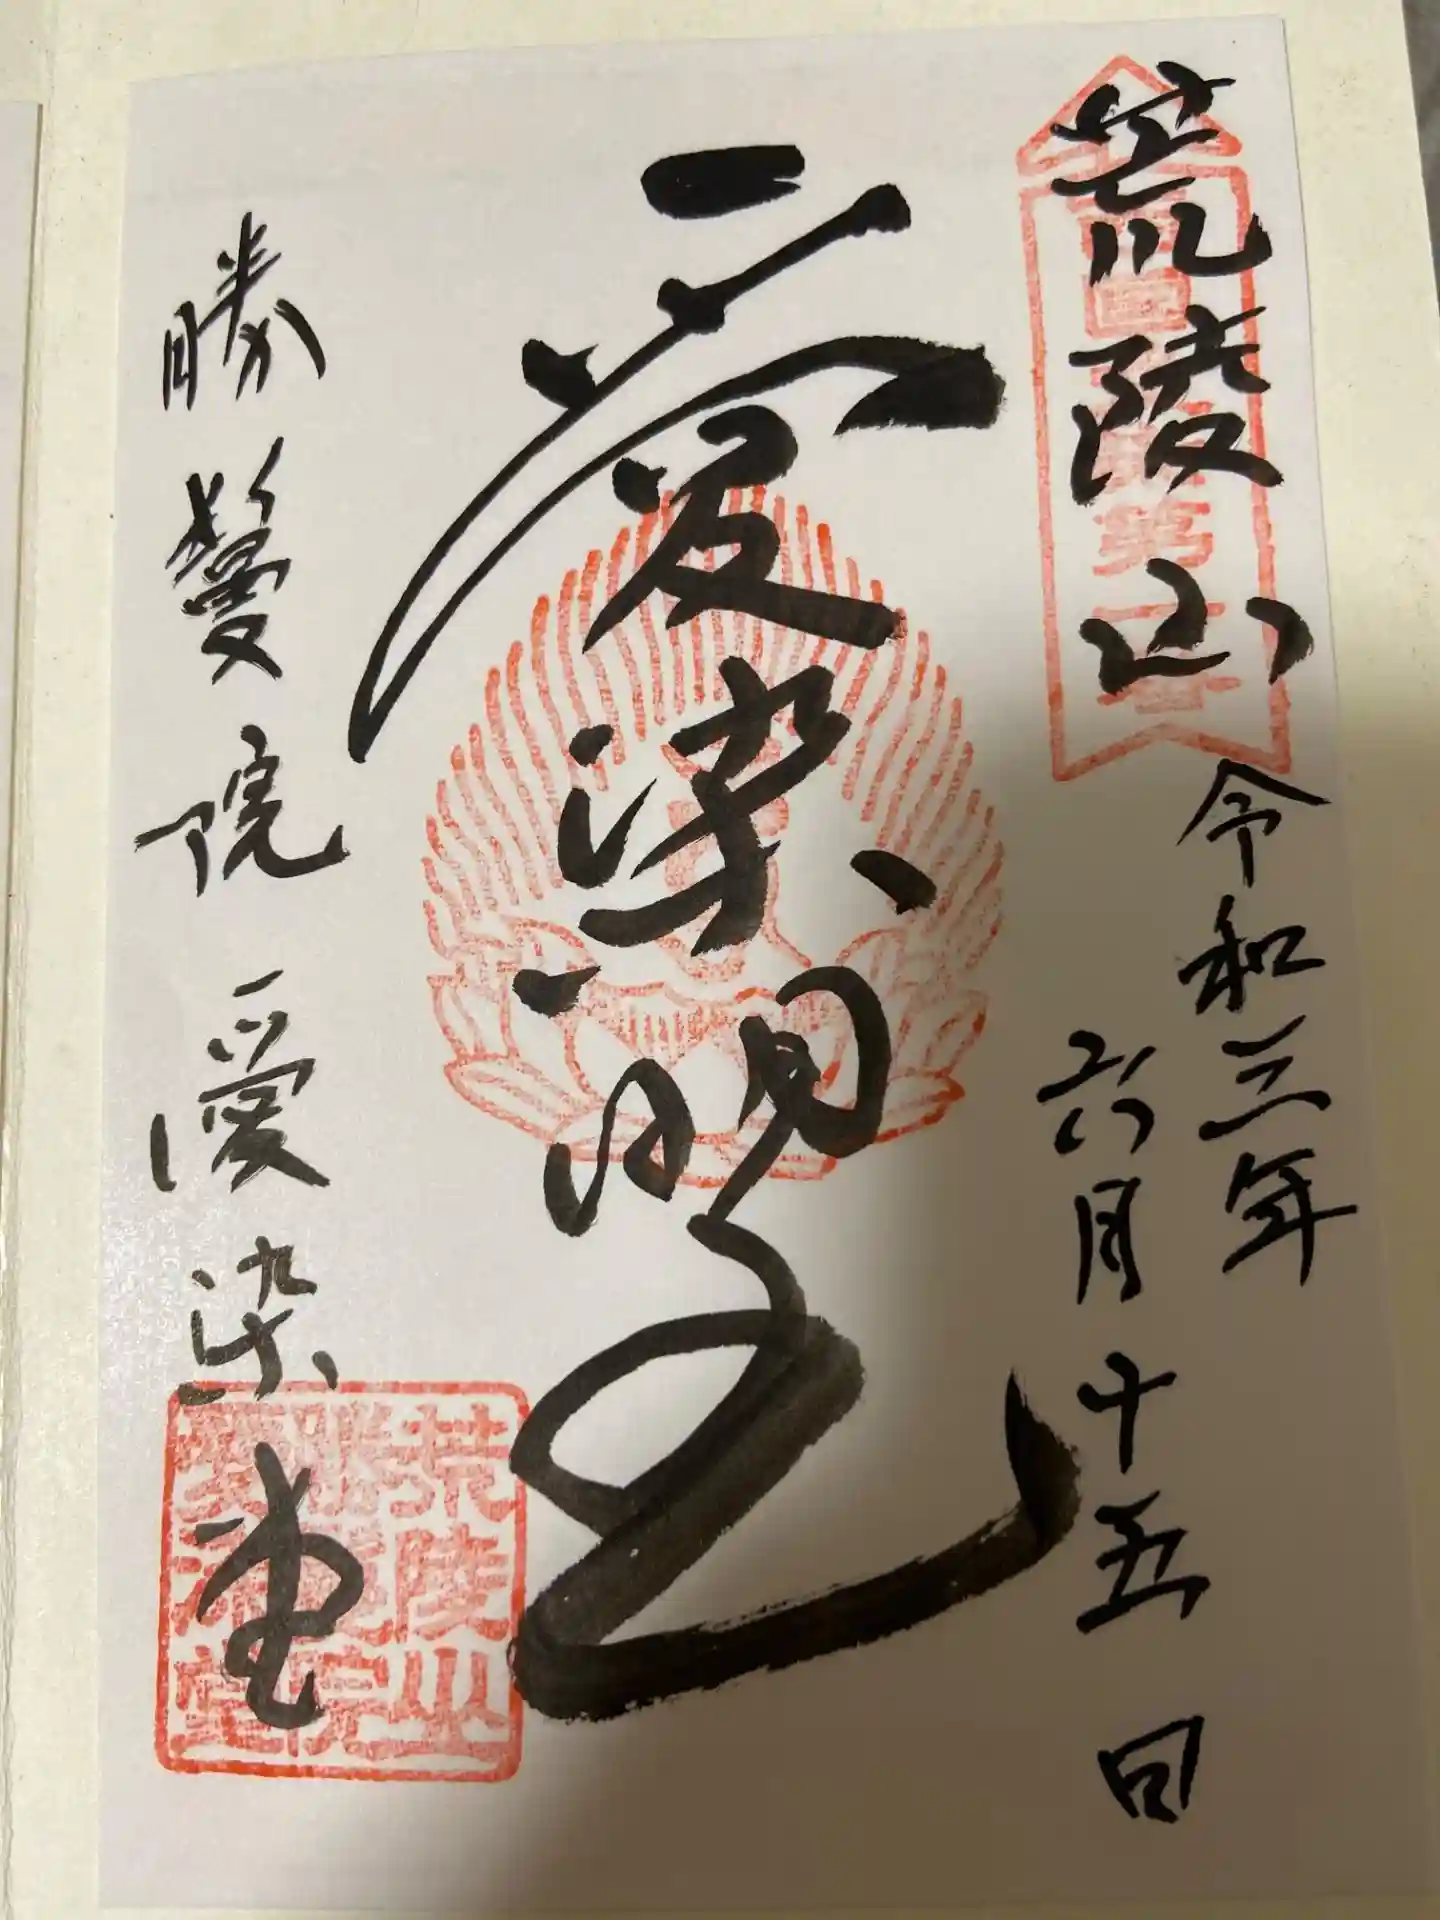 荒陵山
令和三年
六月十五日
愛染明王
勝鬘院愛染堂
荒陵山
勝鬘院
愛染堂